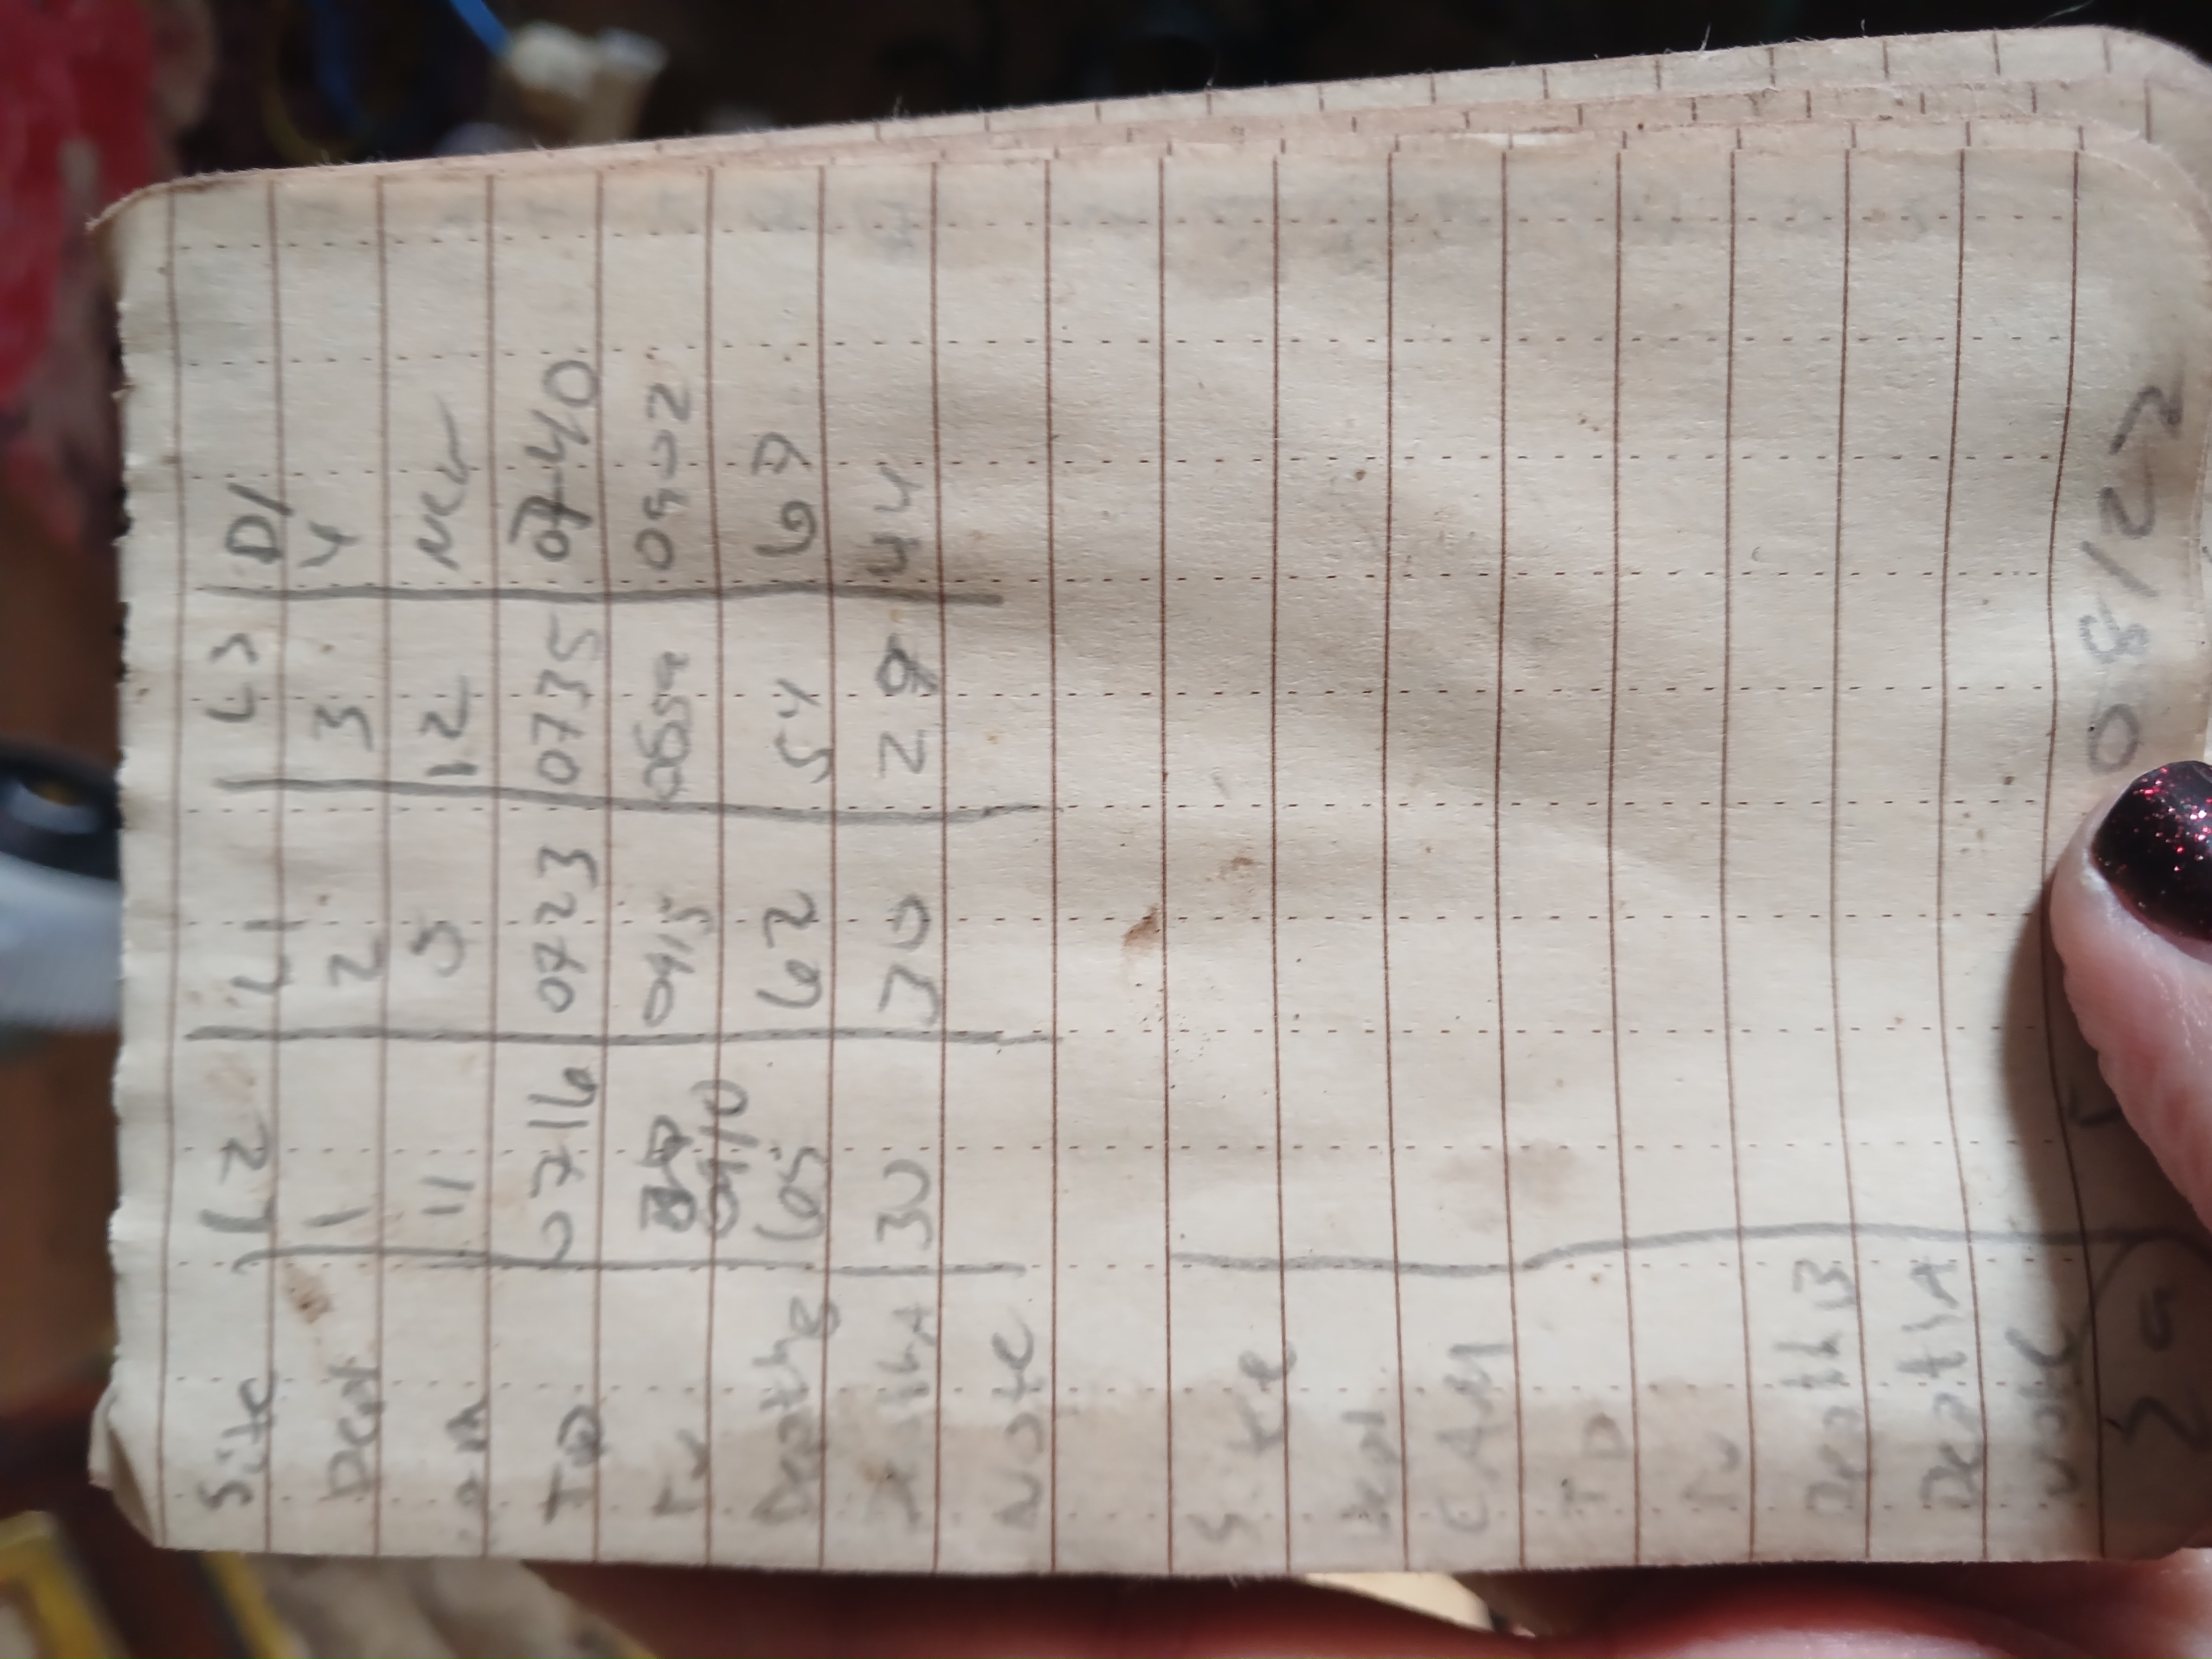 Site L2 L1 L3 D1
Depl 1 2 3 4
11 5 12 New
TD 0716 0723 0735 0740
Tu 0910 0915 0859 0902
Depth B 65 62 54 67
Depth A 30 30 29 44
Note
Site
Depl
CAM
TD
Tu
Depth B
Depth A
Note
08/22